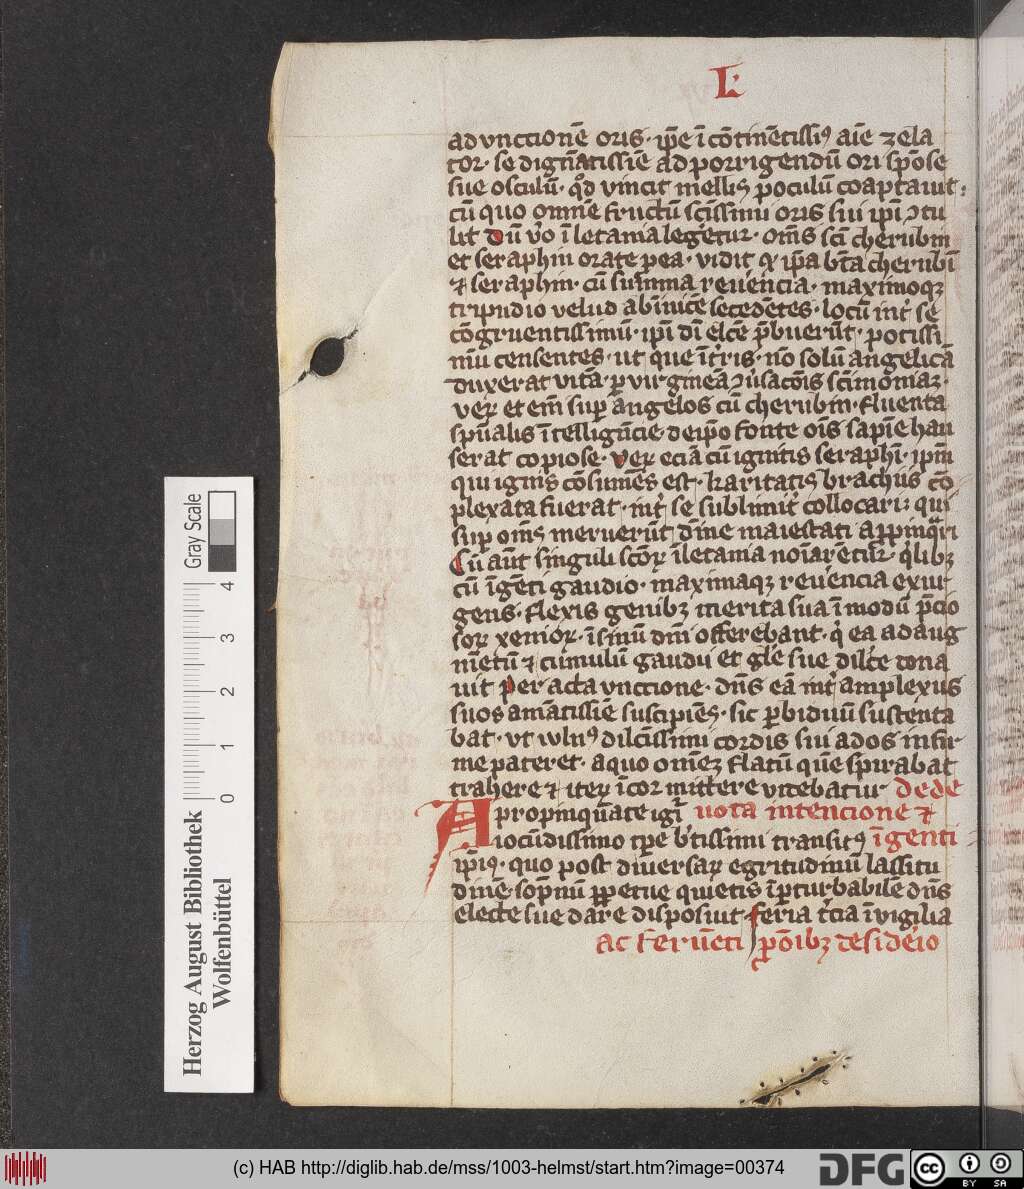 L·
ad vnctionē oris · ip̄e ī cōtinētissiꝰ aīe zela
tor · se dignātissīe ad porrigendū ori spōse
sue osculū · qd̄ vincit mellis poculū coaptauit ·
cū quo omnē fructū scīssimi oris sui ipī ꝯtu
lit Dū v̄o ī letania legētur · om̄s scī cherubin
et seraphin orate p ea · vidit qꝛ ipā btā cherubī
⁊ seraphin · cū summa reuēncia · maximoqꝫ
tripudio velud ab īnicē secedētes · locū int̄ se
cōgruentissimū · ipī dī elcē p̄buerūt · potissi
mū censentes · ut que ī tr̄is · nō solū angelicā
duxerat vitā · ꝑ virgineā ꝯuersacōis scīmoniaꝫ ·
veꝝ et em̄ suꝑ angelos cū cherubin · fluenta
spūalis ītelligēncie de ip̄o fonte oīs sapīe hau
serat copiose · veꝝ eciā cū ignitis seraphī · ipm̄
qui ignis cōsumēs est · karitatis brachiis cō
plexata fuerat · int̄ se sublimit̄ collocari · qui
suꝑ om̄s meruerūt dīne maiestati aꝓpinq̄ri
Cū aūt singuli scōꝝ ī letania noīarētur · q̄libꝫ
cū īgēti gaudio · maximaqꝫ reuēncia exur
gens · flexis genibꝫ merita sua ī modū p̄cio
soꝝ xenioꝝ · ī sinū dn̄i offerebant · q̄ ea ad aug
mētū ⁊ cumulū gaudii et gl̄e sue dilc̄e dona
uit Peracta vnctione · dn̄s eā int̄ amplexus
suos amātissīe suscipiēs · sic ꝑ biduū sustenta
bat · vt wlnꝰ dilcīssimi cordis sui ad os infir
me pateret · a quo omēꝫ flatū quē spirabat
trahere ⁊ iteꝝ ī cor mittere videbatur de de
Apropinquāte igr̄ uota intencione ⁊
iocūdissimo tp̄e btīssimi transitꝰ īgenti
ip̄iꝰ · quo post diuersaꝝ egritudinū lassitu
dinē · sopnū ꝑpetue quietis īperturbabilē dn̄s
electe sue dare disposuit · feria tc̄ia ī vigilia
ac feruēti p̄cōibꝫ desideīo
Herzog August Bibliothek
Wolfenbüttel
0 1 2 3 4
Gray Scale
(c) HAB http://diglib.hab.de/mss/1003-helmst/start.htm?image=00374
DFG
cc BY SA